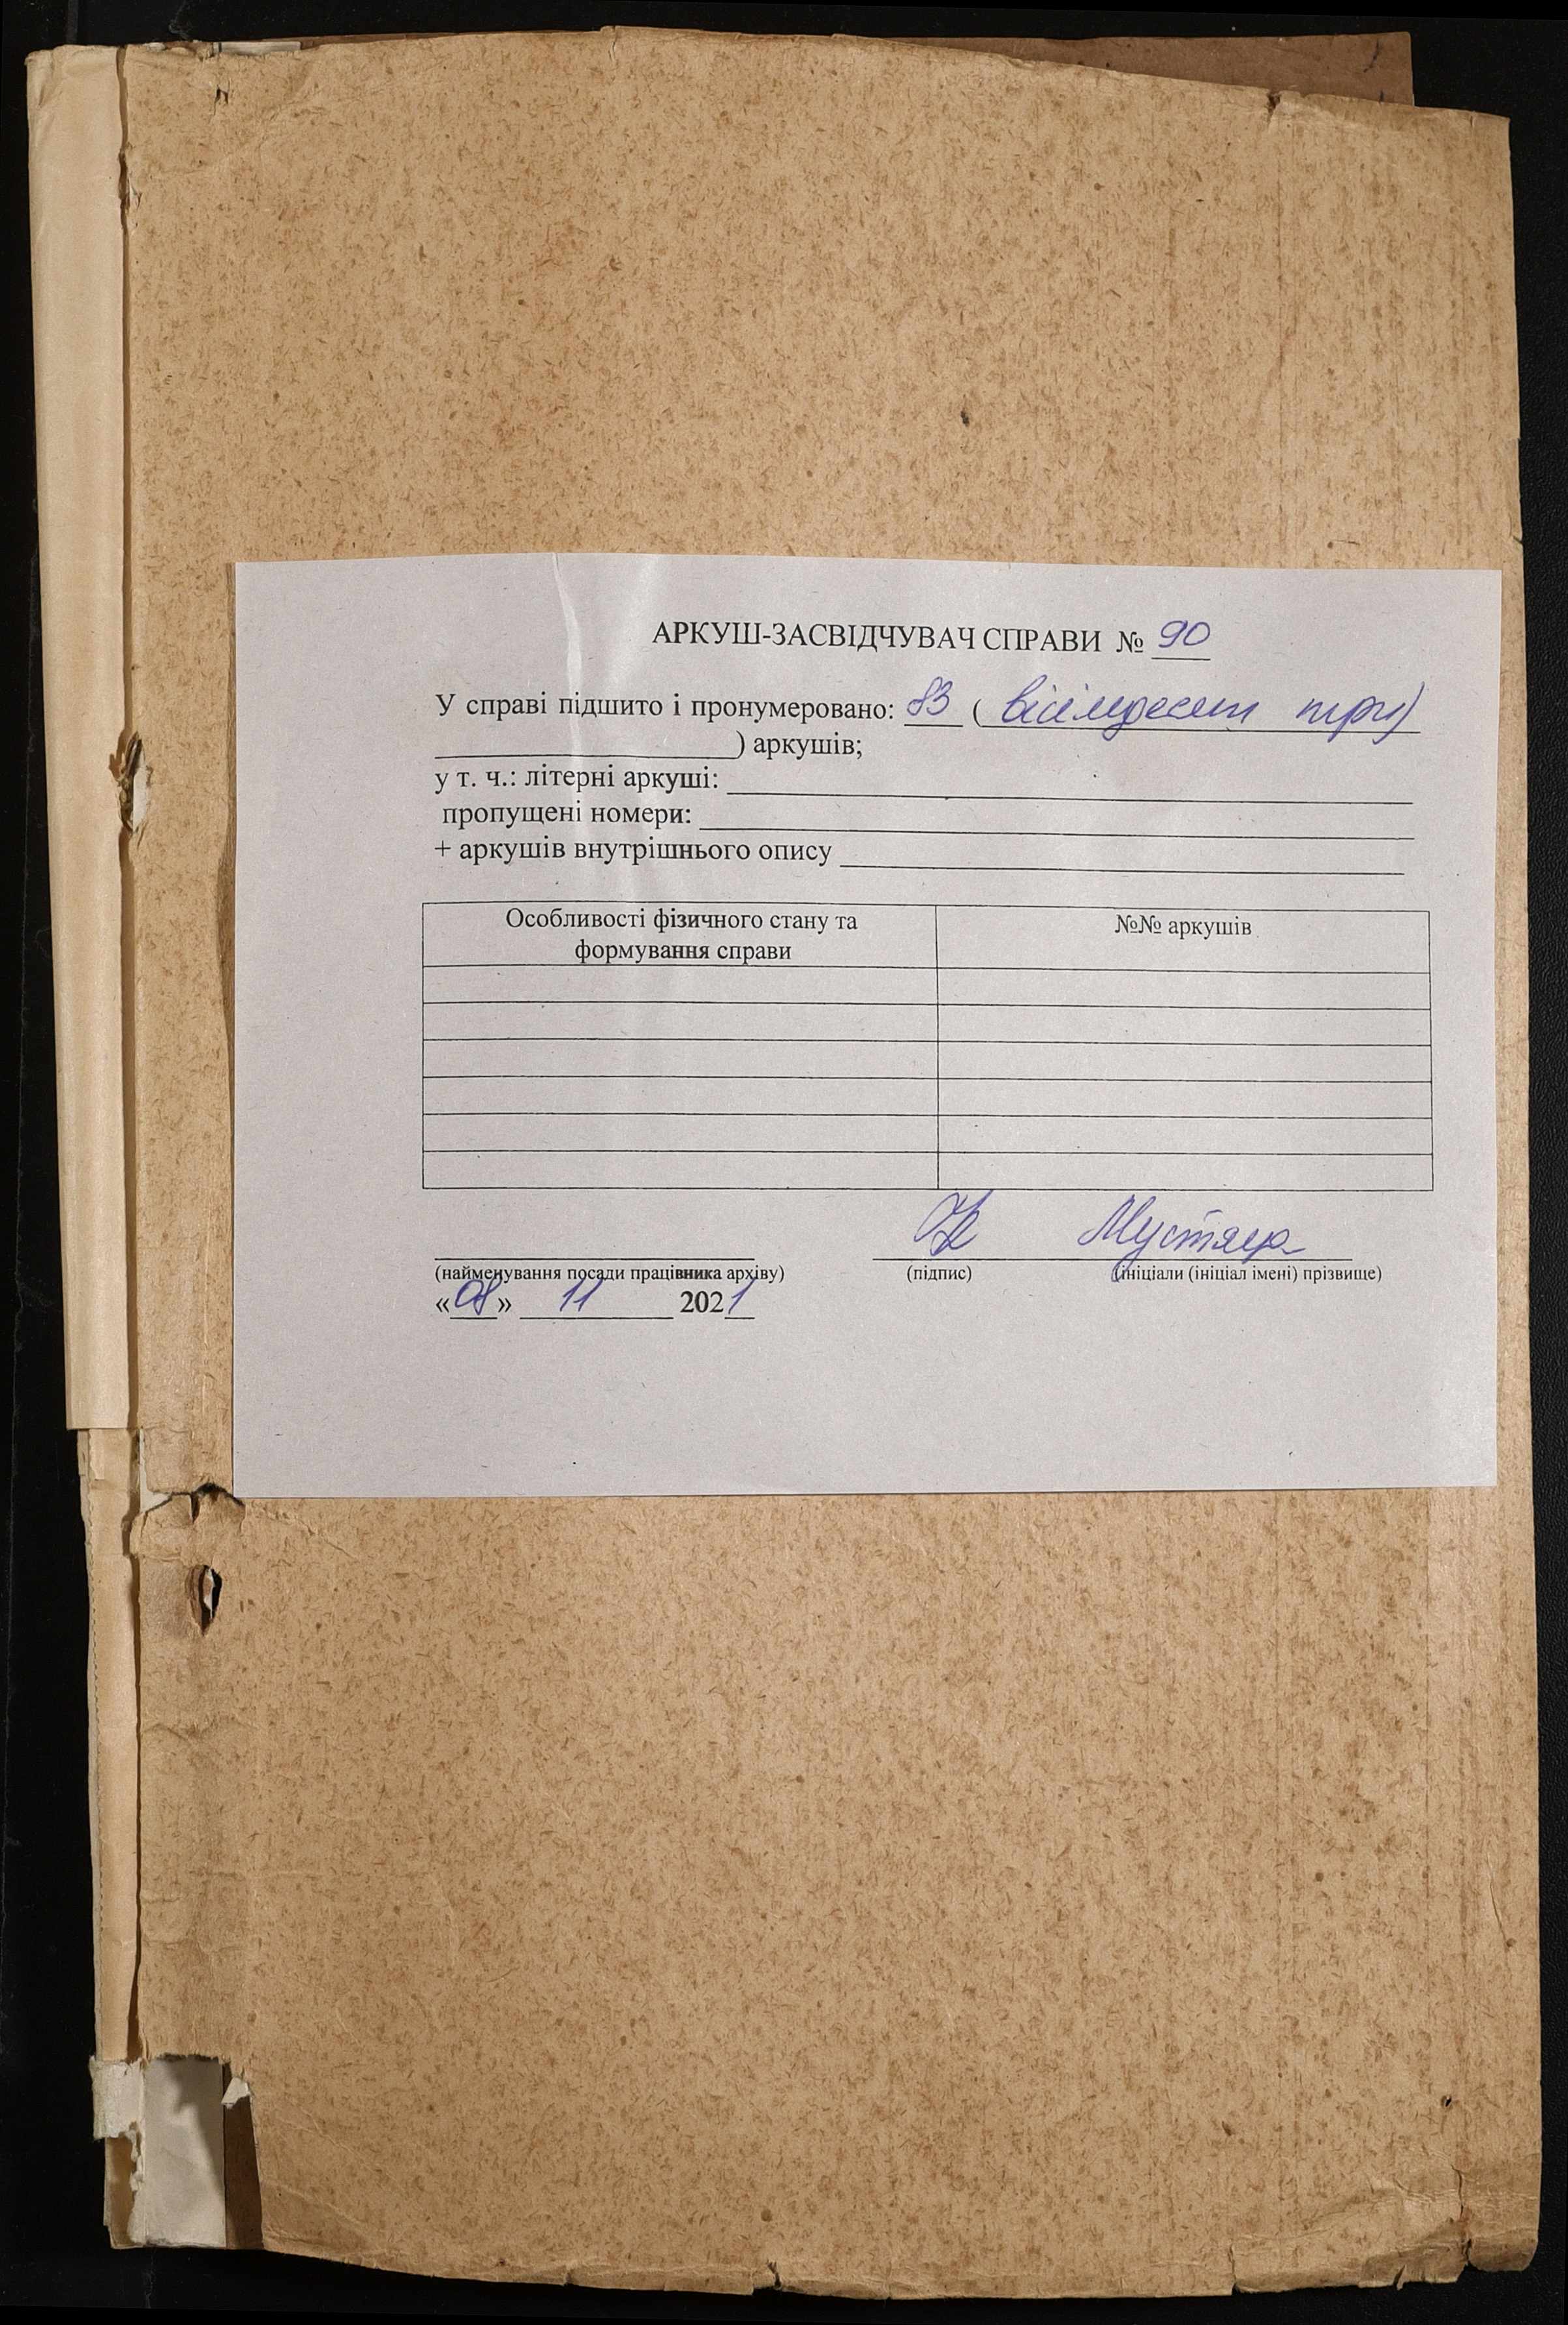 АРКУШ-ЗАСВІДЧУВАЧ СПРАВИ № 90
У справі підшито і пронумеровано: 83 ( вісімдесят три)
) аркушів;
у т. ч.: літерні аркуші:
пропущені номери:
+ аркушів внутрішнього опису
Особливості фізичного стану та
формування справи
№№ аркушів
(найменування посади працівника архіву)
(підпис)
(ініціали (ініціал імені) прізвище)
«08» 11 2021